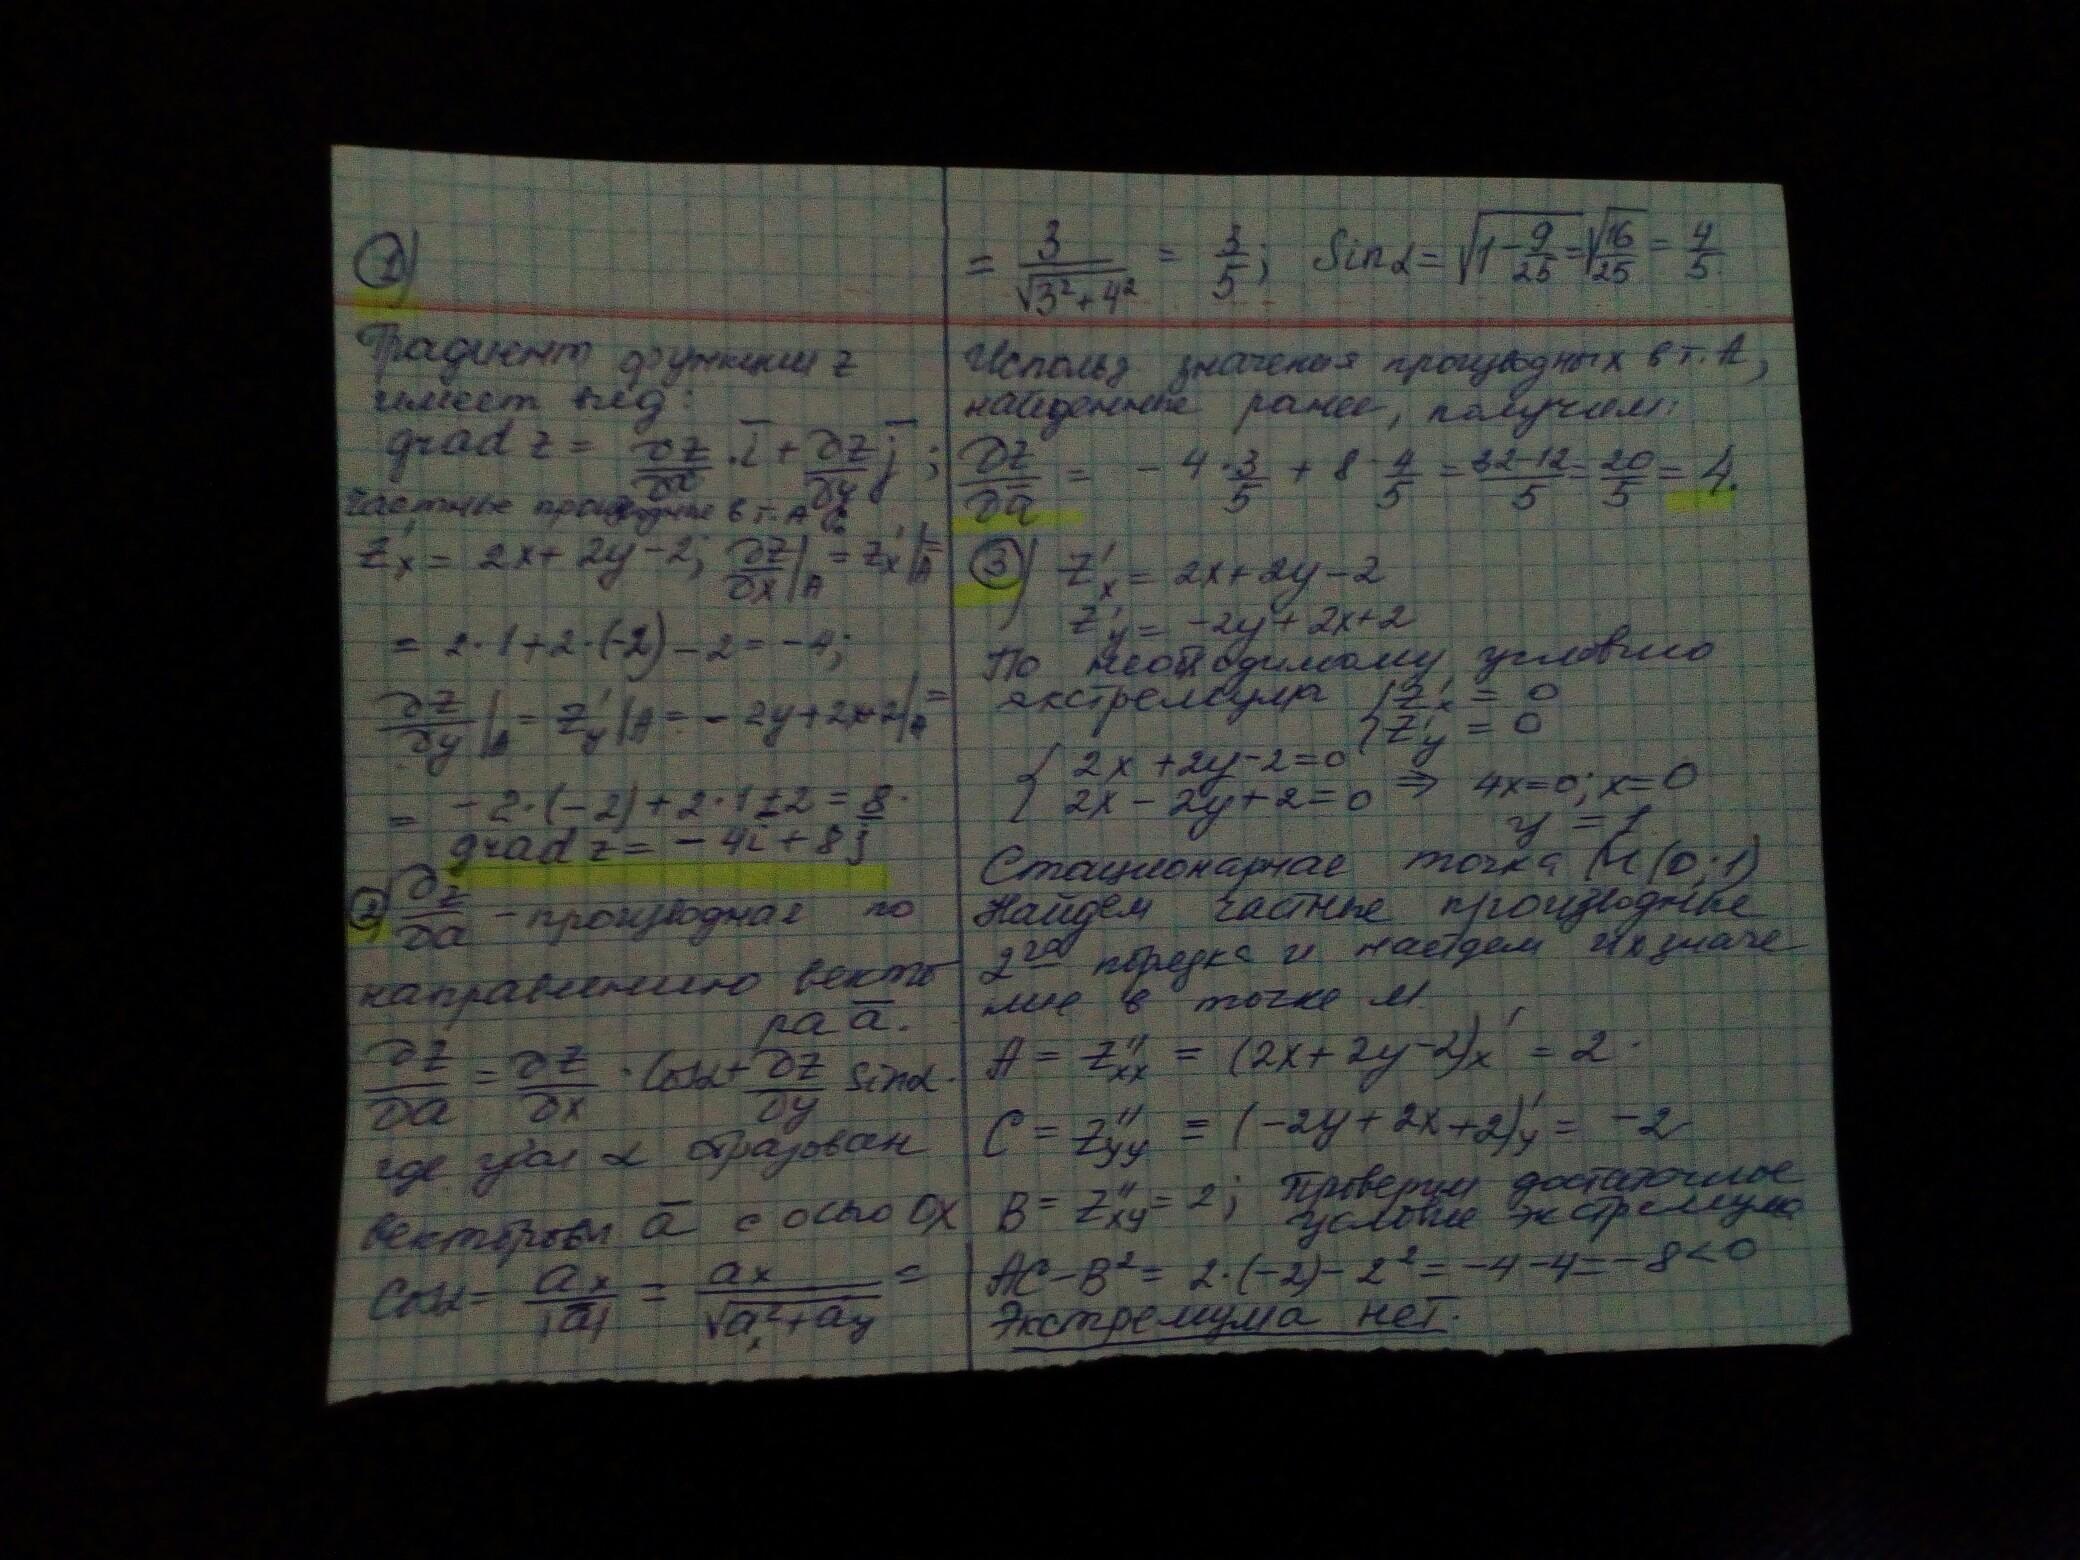 1)
Градиент функции z
имеет вид:
grad z = ∂z/∂x · i̅ + ∂z/∂y j̅ ;
частные производные в т. А
z'x = 2x + 2y - 2; ∂z/∂x|A = z'x|A =
= 2·1 + 2·(-2) - 2 = -4;
∂z/∂y|A = z'y|A = -2y + 2x + 2|A =
= -2·(-2) + 2·1 + 2 = 8.
grad z = -4i + 8j
2) ∂z/∂a - производная по
направлению векто
ра a̅.
∂z/∂a = ∂z/∂x · cosα + ∂z/∂y sinα.
где угол α образован
вектором a̅ с осью Ox
cosα = ax/|a̅| = ax/√(ax² + ay) =
= 3/√(3² + 4²) = 3/5; Sinα = √(1 - 9/25) = √(16/25) = 4/5.
Использ значения производных в т. А,
найденные ранее, получим:
∂z/∂a̅ = -4 · 3/5 + 8 · 4/5 = (32-12)/5 = 20/5 = 4.
3) z'x = 2x + 2y - 2
z'y = -2y + 2x + 2
По необходимому условию
экстремума { z'x = 0
z'y = 0
{ 2x + 2y - 2 = 0
2x - 2y + 2 = 0 ⇒ 4x = 0; x = 0
y = 1.
Стационарная точка М(0; 1)
Найдем частные производные
2го порядка и найдем их значе
ние в точке М.
A = z''xx = (2x + 2y - 2)'x = 2.
C = z''yy = (-2y + 2x + 2)'y = -2
B = z''xy = 2; Проверим достаточное
условие экстремума
AC - B² = 2·(-2) - 2² = -4 - 4 = -8 < 0
Экстремума нет.